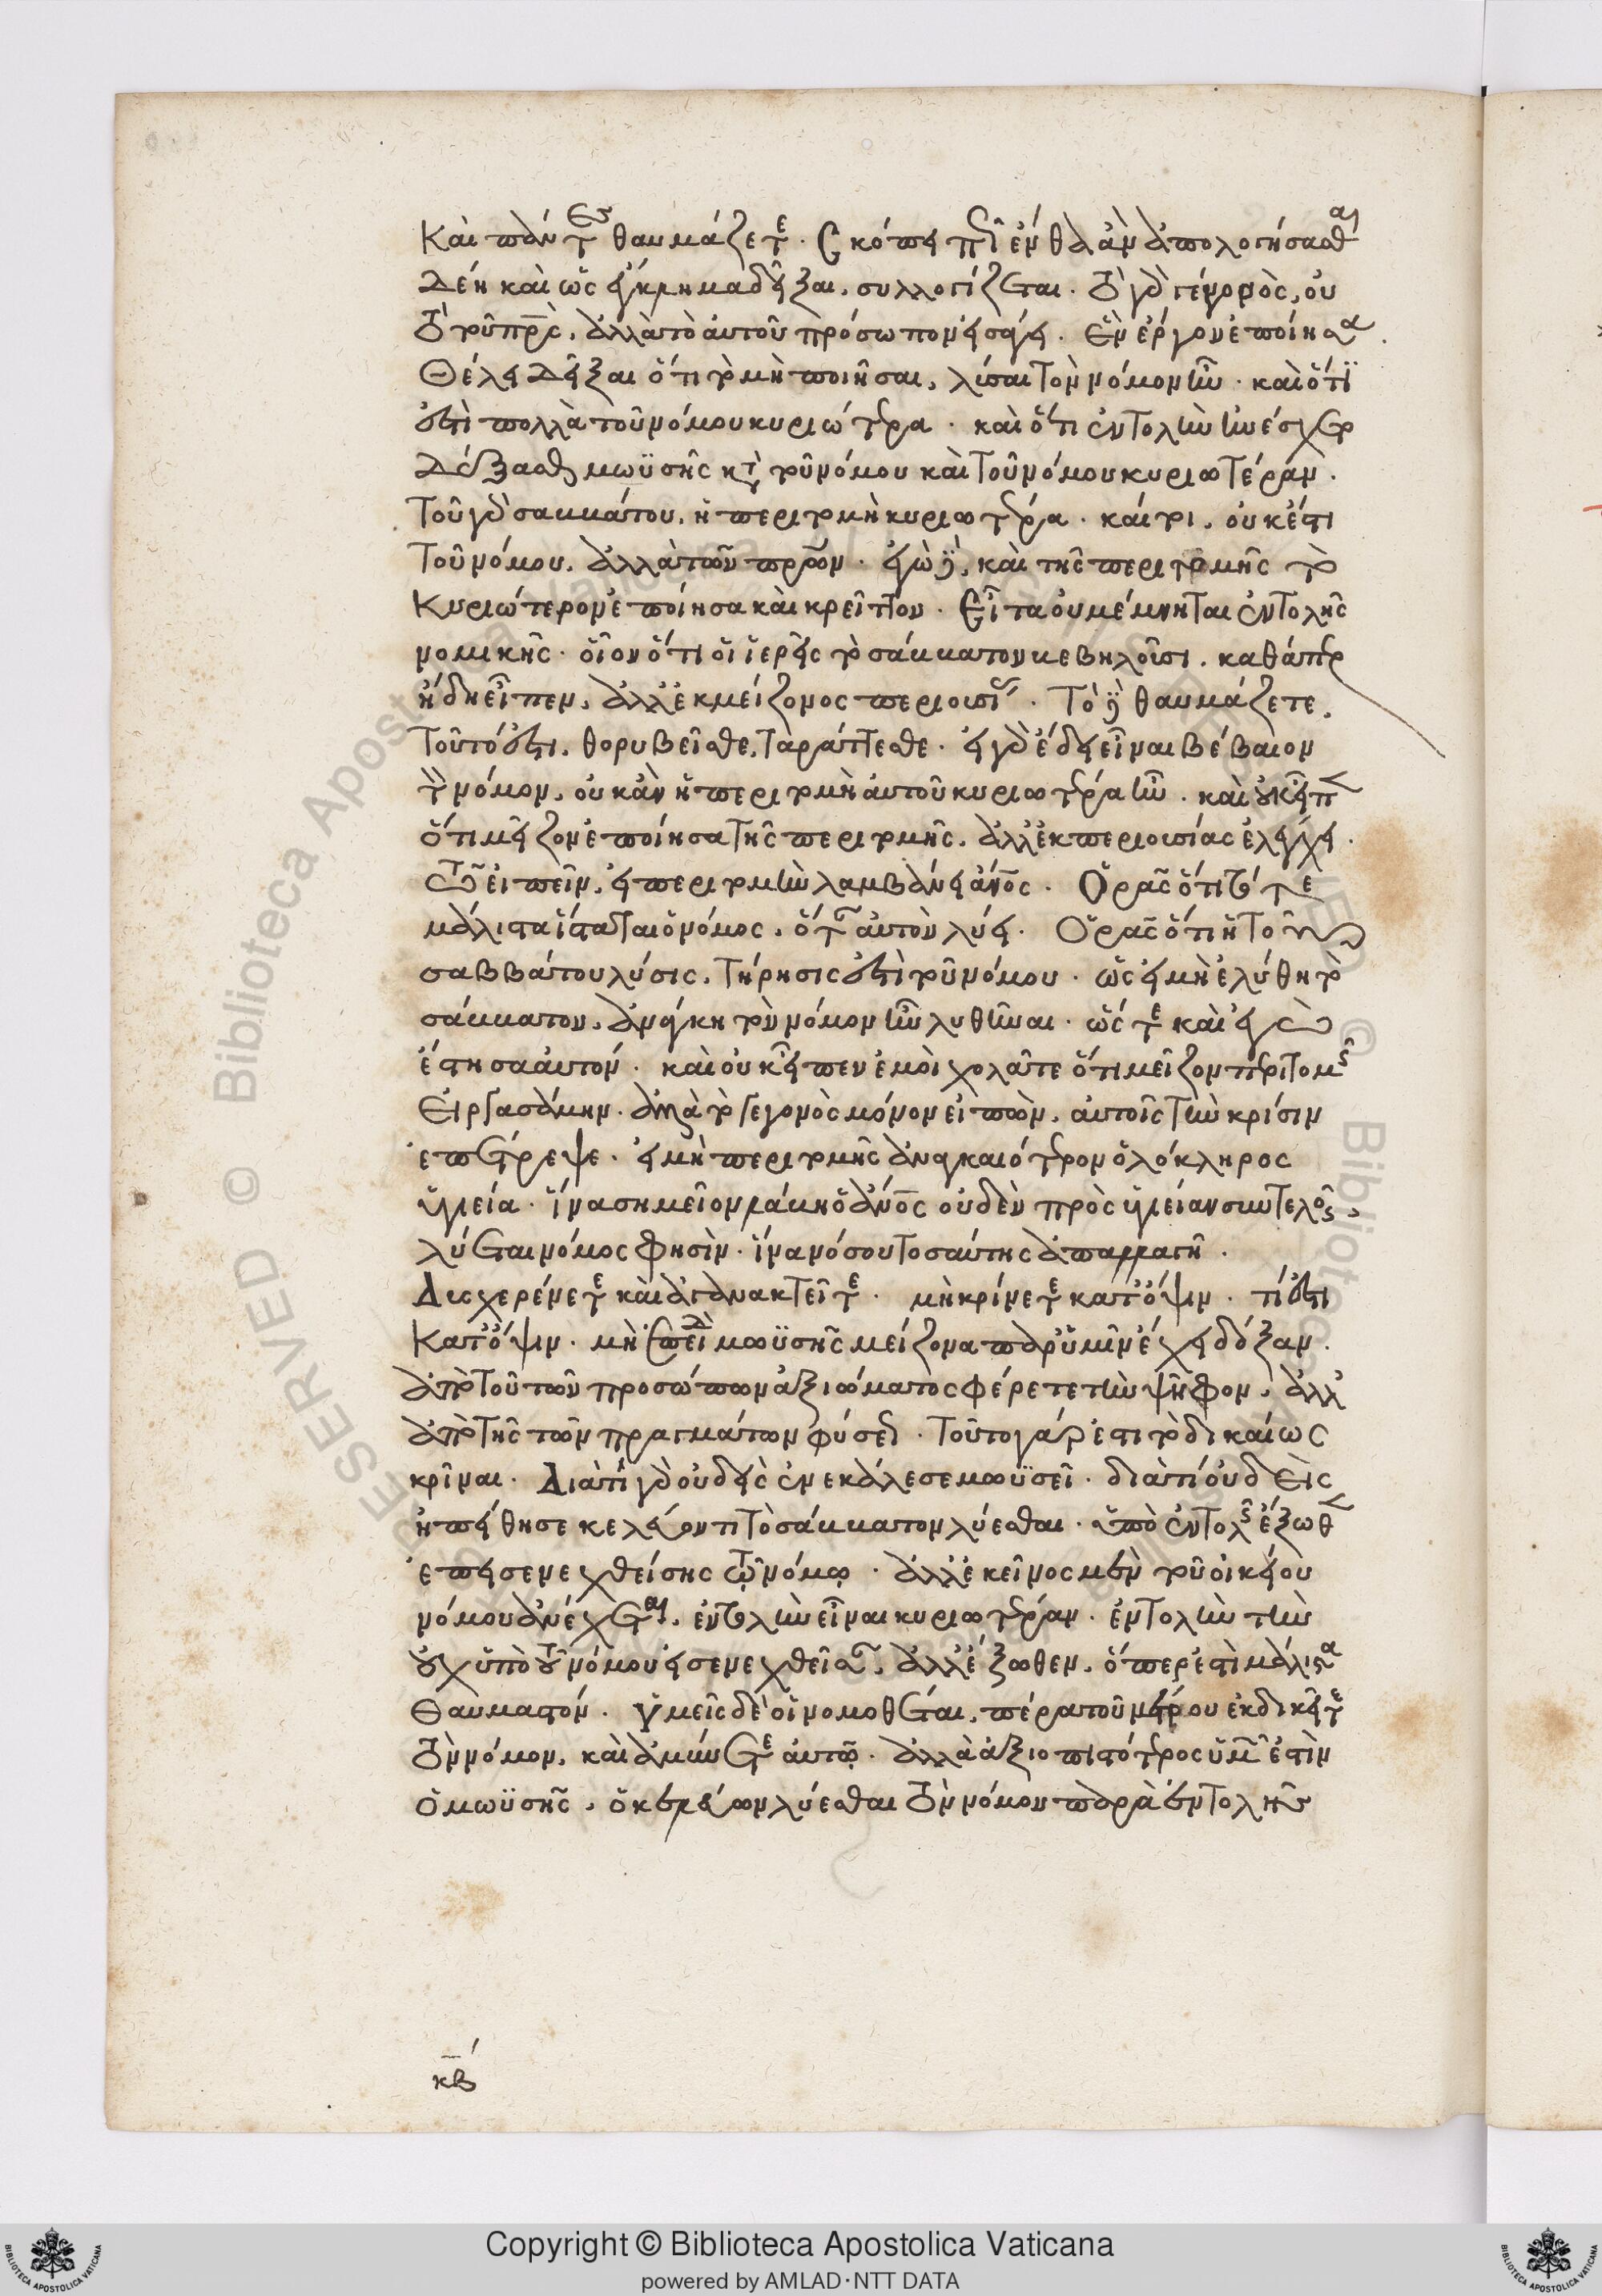 Καὶ πάντες θαυμάζετε. Σκόπει πῶς ἔνθα ἂν ἀπολογήσασθαι
δέῃ καὶ ὡς ἔγκλημα δεῖξαι, συλλογίζεται. τὸ γὰρ γεγονὸς, οὐ
τὸ τοῦ πρς, ἀλλὰ τὸ αὐτοῦ πρόσωπον εἰσάγει. Ἓν ἔργον ἐποίησα
Θέλει δεῖξαι ὅτι τὸ μὴ ποιῆσαι, λύσαι τὸν νόμον ἦν. καὶ ὅτι
ἐστὶ πολλὰ τοῦ νόμου κυριώτερα. καὶ ὅτι ἐντολὴν ἠνέσχετο
δέξασθαι μωϋσῆς κατὰ τοῦ νόμου καὶ τοῦ νόμου κυριωτέραν.
Τοῦ γὰρ σαββάτου, ἡ περιτομὴ κυριωτέρα. καίτοι, οὐκ ἔστι
τοῦ νόμου, ἀλλὰ τῶν πρων. ἐγὼ δὲ, καὶ τῆς περιτομῆς τὸ
Κυριώτερον ἐποίησα καὶ κρεῖττον. Εἶτα οὐ μέμνηται ἐντολῆς
νομικῆς. οἷον ὅτι οἱ ἱερεῖς τὸ σάββατον βεβηλοῦσι. καθάπερ
ἤδη εἶπεν, ἀλλ' ἐκ μείζονος περιουσίας. Τὸ δὲ θαυμάζετε,
τοῦτό ἐστι, θορυβεῖσθε, ταράττεσθε. εἰ γὰρ ἔδει εἶναι βέβαιον
τὸν νόμον, οὐκ ἂν ἡ περιτομὴ αὐτοῦ κυριωτέρα ἦν. καὶ οὐκ εἶπεν
ὅτι μεῖζον ἐποίησα τῆς περιτομῆς, ἀλλ' ἐκ περιουσίας ἐλέγχει
τῶ εἰπεῖν, εἰ περιτομὴν λαμβάνει ἄνος. Ὁρᾶς ὅτι τότε
μάλιστα ἵσταται ὁ νόμος, ὅταν αὐτὸν λύει. Ὁρᾶς ὅτι ἡ τοῦ
σαββάτου λύσις, τήρησις ἐστὶ τοῦ νόμου. ὡς εἰ μὴ ἐλύθη τὸ
σάββατον, ἀνάγκη τὸν νόμον ἦν λυθῆναι. ὥστε καὶ ἐγὼ
ἔστησα αὐτόν. καὶ οὐκ εἶπεν ἐμοὶ χολᾶτε ὅτι μεῖζον περιτομῆς
Εἰργασάμην. ἀλλὰ τὸ γεγονὸς μόνον εἰπὼν, αὐτοῖς τὴν κρίσιν
ἐπέτρεψε. εἰ μὴ περιτομῆς ἀναγκαιότερον ὁλόκληρος
ὑγιεία. ἵνα σημεῖον λάβῃ ὁ ἄνος οὐδὲν πρὸς ὑγιείαν συντελοῦν,
λύεται νόμος φησὶν. ἵνα νόσου τοσαύτης ἀπαλλαγῆ.
Δυσχεραίνετε καὶ ἀγανακτεῖτε. μὴ κρίνετε κατ' ὄψιν. τί ἐστι
Κατ' ὄψιν. μὴ ἐπειδὴ μωϋσῆς μείζονα παρ' ὑμῖν ἔχει δόξαν.
ἀπὸ τοῦ τῶν προσώπων ἀξιώματος φέρετε τὴν ψῆφον, ἀλλ'
ἀπὸ τῆς τῶν πραγμάτων φύσει. τοῦτο γάρ ἐστι τὸ δικαίως
κρῖναι. Διατί γὰρ οὐδεὶς ἐνεκάλεσε μωϋσεῖ. διατί οὐδεὶς
ἠπείθησε κελεύοντι τὸ σάββατον λύεσθαι. ὑπὸ ἐντολῆς ἔξωθεν
ἐπεισενεχθείσης τῶ νόμω. ἀλλ' ἐκεῖνος μὲν τοῦ οἰκείου
νόμου ἀνέχεται, ἐντολὴν εἶναι κυριωτέραν. ἐντολὴν τὴν
οὐχ ὑπὸ τοῦ νόμου εἰσενεχθεῖσαν, ἀλλ' ἔξωθεν, ὅπερ ἐστὶ μάλιστα
Θαυμαστόν. Ὑμεῖς δὲ οἱ νομοθέται, πέρα τοῦ μέτρου ἐκδικεῖτε
τὸν νόμον, καὶ ἀμύνετε αὐτῶ. ἀλλὰ ἀξιοπιστότερος ὑμῶν ἐστὶν
ὁ μωϋσῆς, ὁ κελεύων λύεσθαι τὸν νόμον παρὰ ἐντολῆς
κβ
© Biblioteca Apostolica Vaticana
Copyright © Biblioteca Apostolica Vaticana
powered by AMLAD·NTT DATA
BIBLIOTECA APOSTOLICA VATICANA
BIBLIOTECA APOSTOLICA VATICANA